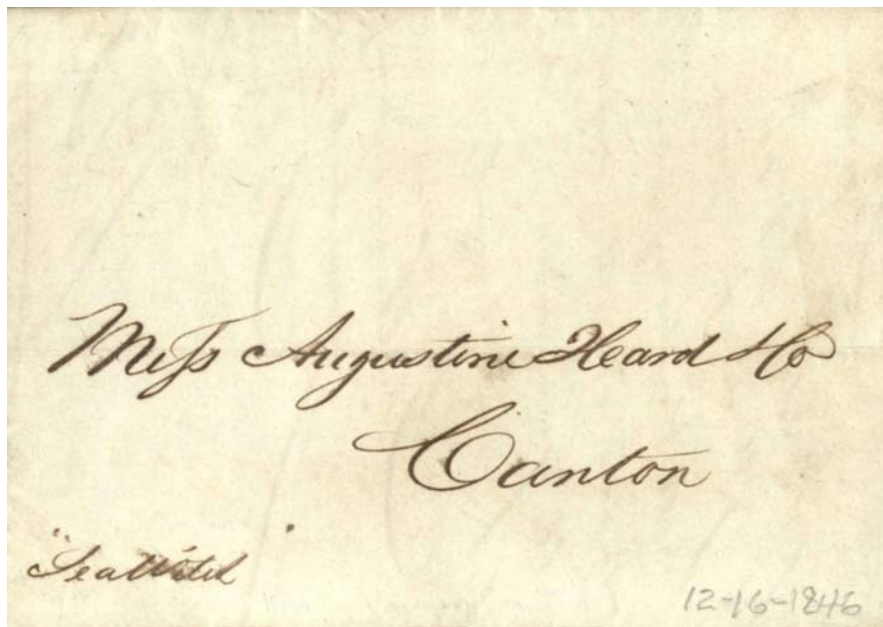 Mess Augustine Heard & Co
Canton
"Sea Witch"
12-16-1846